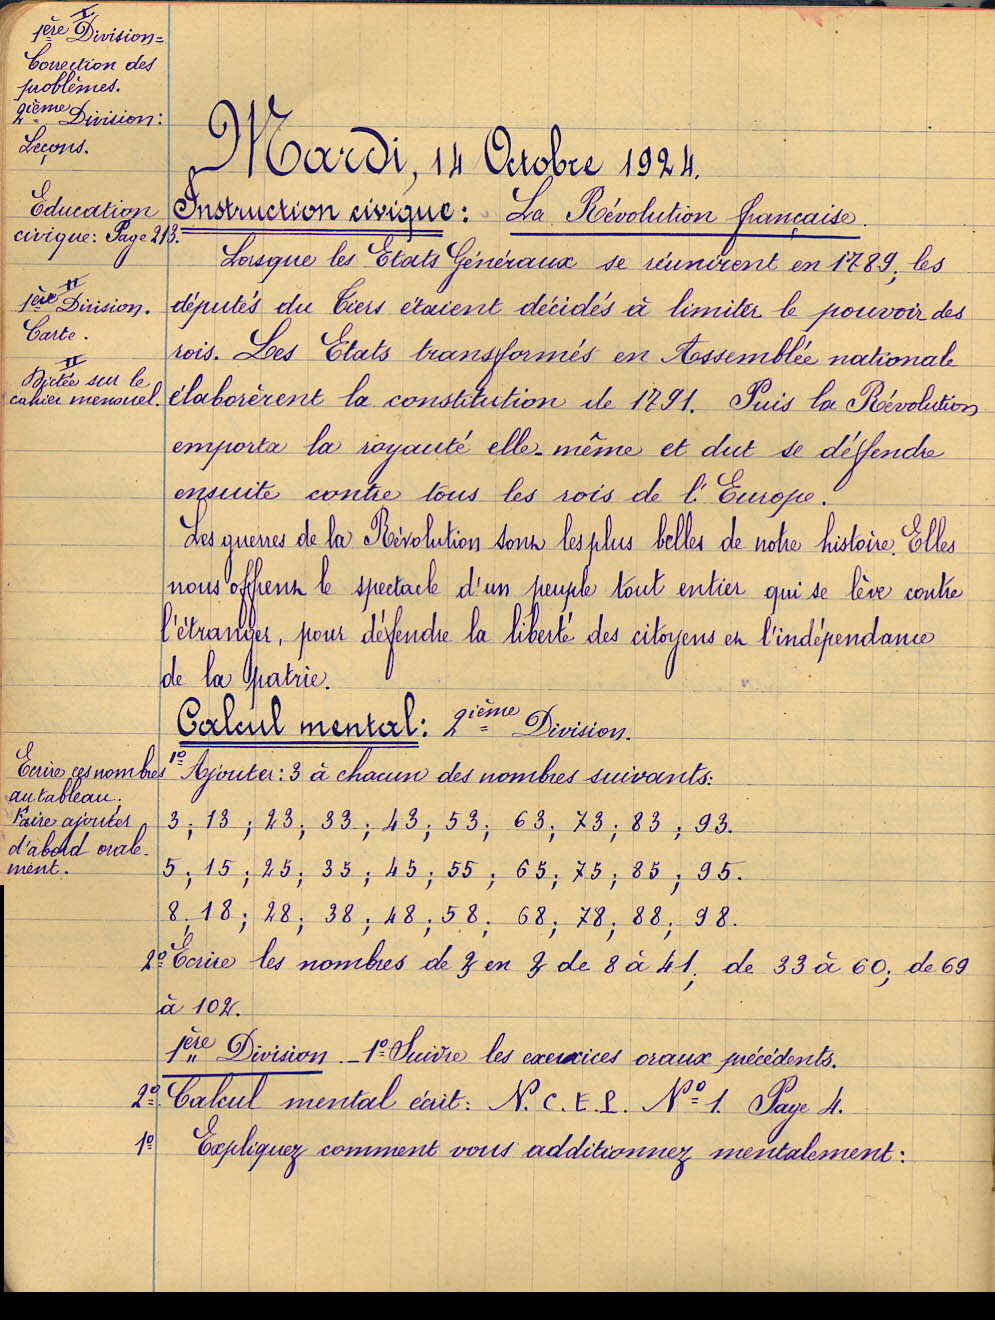 I
1ère Division =
Correction des
problèmes.
2ième Division :
Leçons.
Mardi, 14 Octobre 1924.
Education
civique : Page 213.
Instruction civique : La Révolution française.
Lorsque les Etats Généraux se réunirent en 1789, les
II
1ère Division.
Carte.
députés du Tiers étaient décidés à limiter le pouvoir des
rois. Les Etats transformés en Assemblée nationale
II
Dictée sur le
cahier mensuel.
élaborèrent la constitution de 1791. Puis la Révolution
emporta la royauté elle-même et dut se déffendre
ensuite contre tous les rois de l'Europe.
Les guerres de la Révolution sont les plus belles de notre histoire. Elles
nous offrent le spectacle d'un peuple tout entier qui se lève contre
l'étranger, pour défendre la liberté des citoyens et l'indépendance
de la patrie.
Calcul mental : 2ième Division.
Ecrire ces nombres
au tableau,
Faire ajouter
d'abord orale-
ment.
1º Ajouter : 3 à chacun des nombres suivants :
3 ; 13 ; 23 ; 33 ; 43 ; 53 ; 63 ; 73 ; 83 ; 93.
5 ; 15 ; 25 ; 35 ; 45 ; 55 ; 65 ; 75 ; 85 ; 95.
8 ; 18 ; 28 ; 38 ; 48 ; 58 ; 68 ; 78 ; 88 ; 98.
2º Ecrire les nombres de 3 en 3 de 8 à 41 ; de 33 à 60 ; de 69
à 102.
1ère Division _ 1º Suivre les exercices oraux précédents.
2º Calcul mental écrit : N. C. E. P. Nº 1. Page 4.
1º Expliquez comment vous additionnez mentalement :